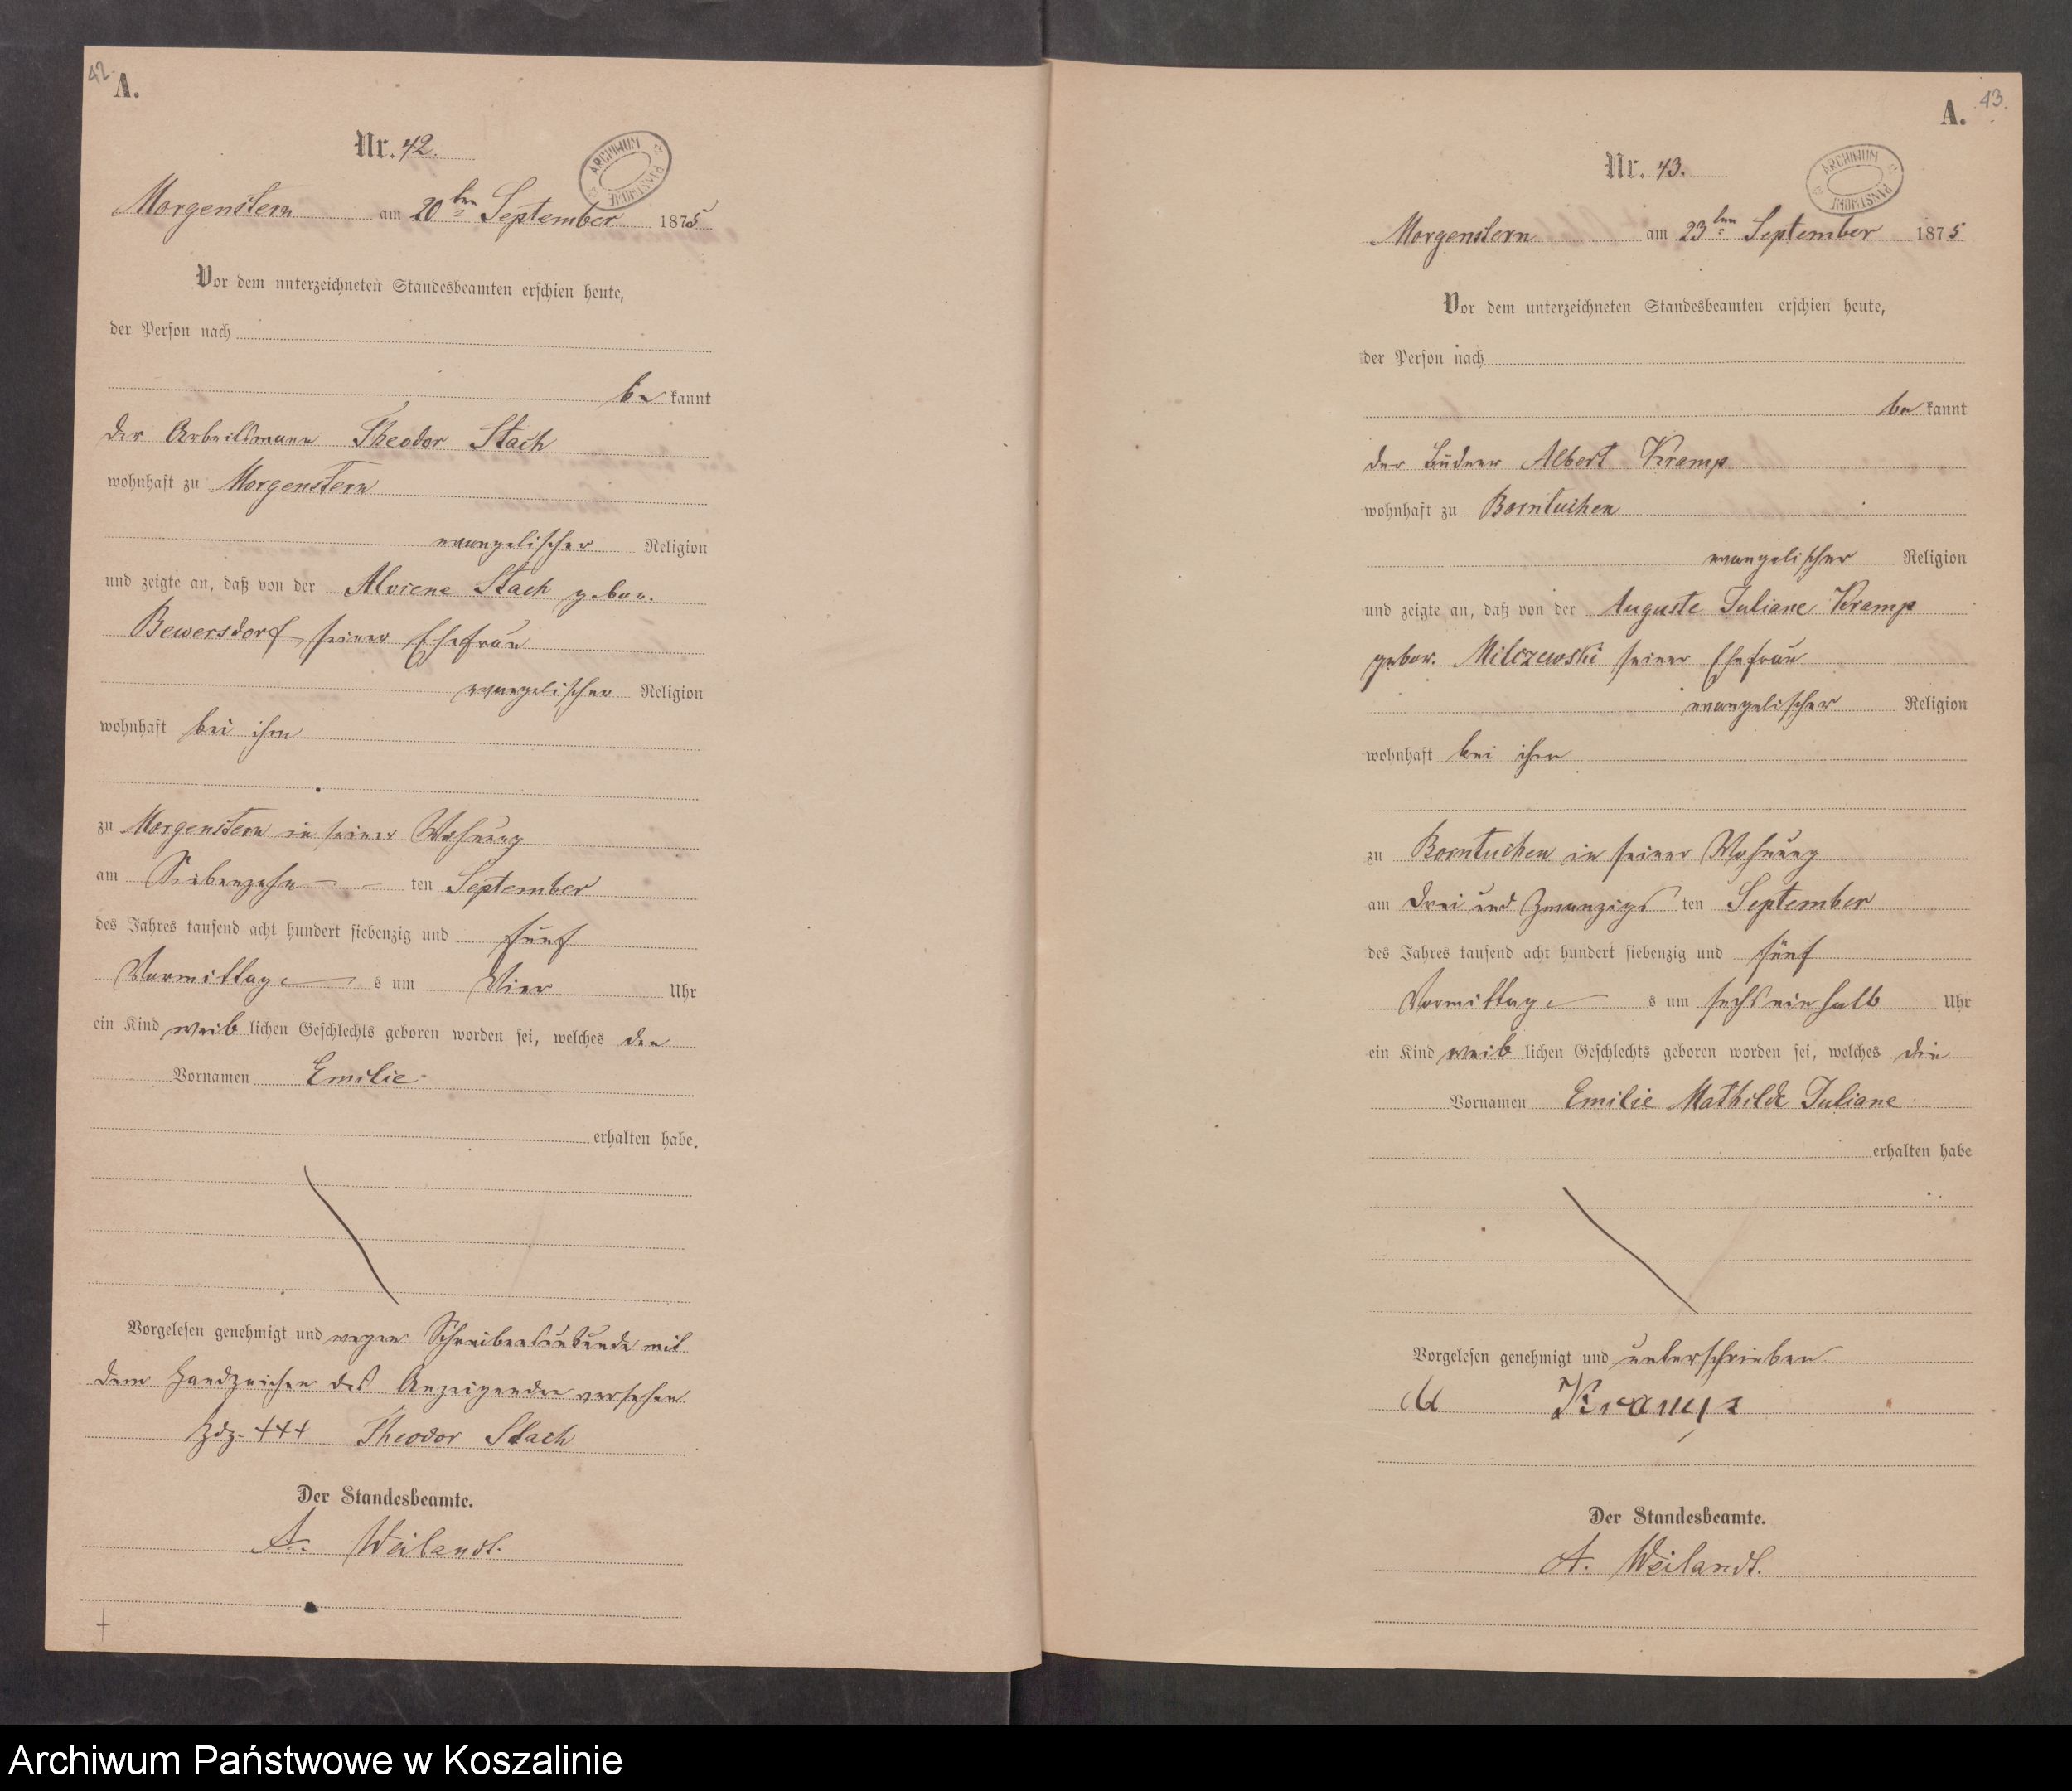 42.
A.
Nr. 42.
ARCHIWUM PAŃSTWOWE
Morgenstern am 20ten September 1875
Vor dem unterzeichneten Standesbeamten erschien heute,
der Person nach
be kannt
der Arbeitsmann Theodor Stach
wohnhaft zu Morgenstern
evangelischer Religion
und zeigte an, daß von der Alviene Stach gebor.
Bewersdorf seiner Ehefrau
evangelischer Religion
wohnhaft bei ihm
zu Morgenstern in seiner Wohnung
am Siebenzehn ten September
des Jahres tausend acht hundert siebenzig und fünf
Vormittag s um Vier Uhr
ein Kind weib lichen Geschlechts geboren worden sei, welches den
Vornamen Emilie
erhalten habe.
Vorgelesen genehmigt und wegen Schreibensunkunde mit
dem Handzeichen des Anzeigenden versehen
Hdz. +++ Theodor Stach
Der Standesbeamte.
A. Weilandt.
43.
A.
Nr. 43.
ARCHIWUM PAŃSTWOWE
Morgenstern am 23ten September 1875
Vor dem unterzeichneten Standesbeamten erschien heute,
der Person nach
be kannt
der Büdner Albert Kramp
wohnhaft zu Borntuchen
evangelischer Religion
und zeigte an, daß von der Auguste Juliane Kramp
gebor. Milczewski seiner Ehefrau
evangelischer Religion
wohnhaft bei ihm
zu Borntuchen in seiner Wohnung
am Drei und Zwanzigs ten September
des Jahres tausend acht hundert siebenzig und fünf
Vormittag s um sechs ein halb Uhr
ein Kind weib lichen Geschlechts geboren worden sei, welches die
Vornamen Emilie Mathilde Juliane
erhalten habe
Vorgelesen genehmigt und unterschrieben
Kramp
Der Standesbeamte.
A. Weilandt.
Archiwum Państwowe w Koszalinie